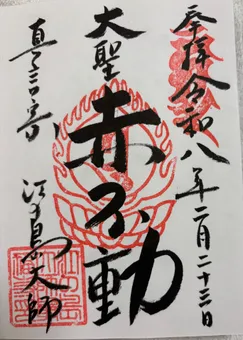 奉拝令和八年二月二十三日
大聖
赤不動
真言宗
江ノ島大師